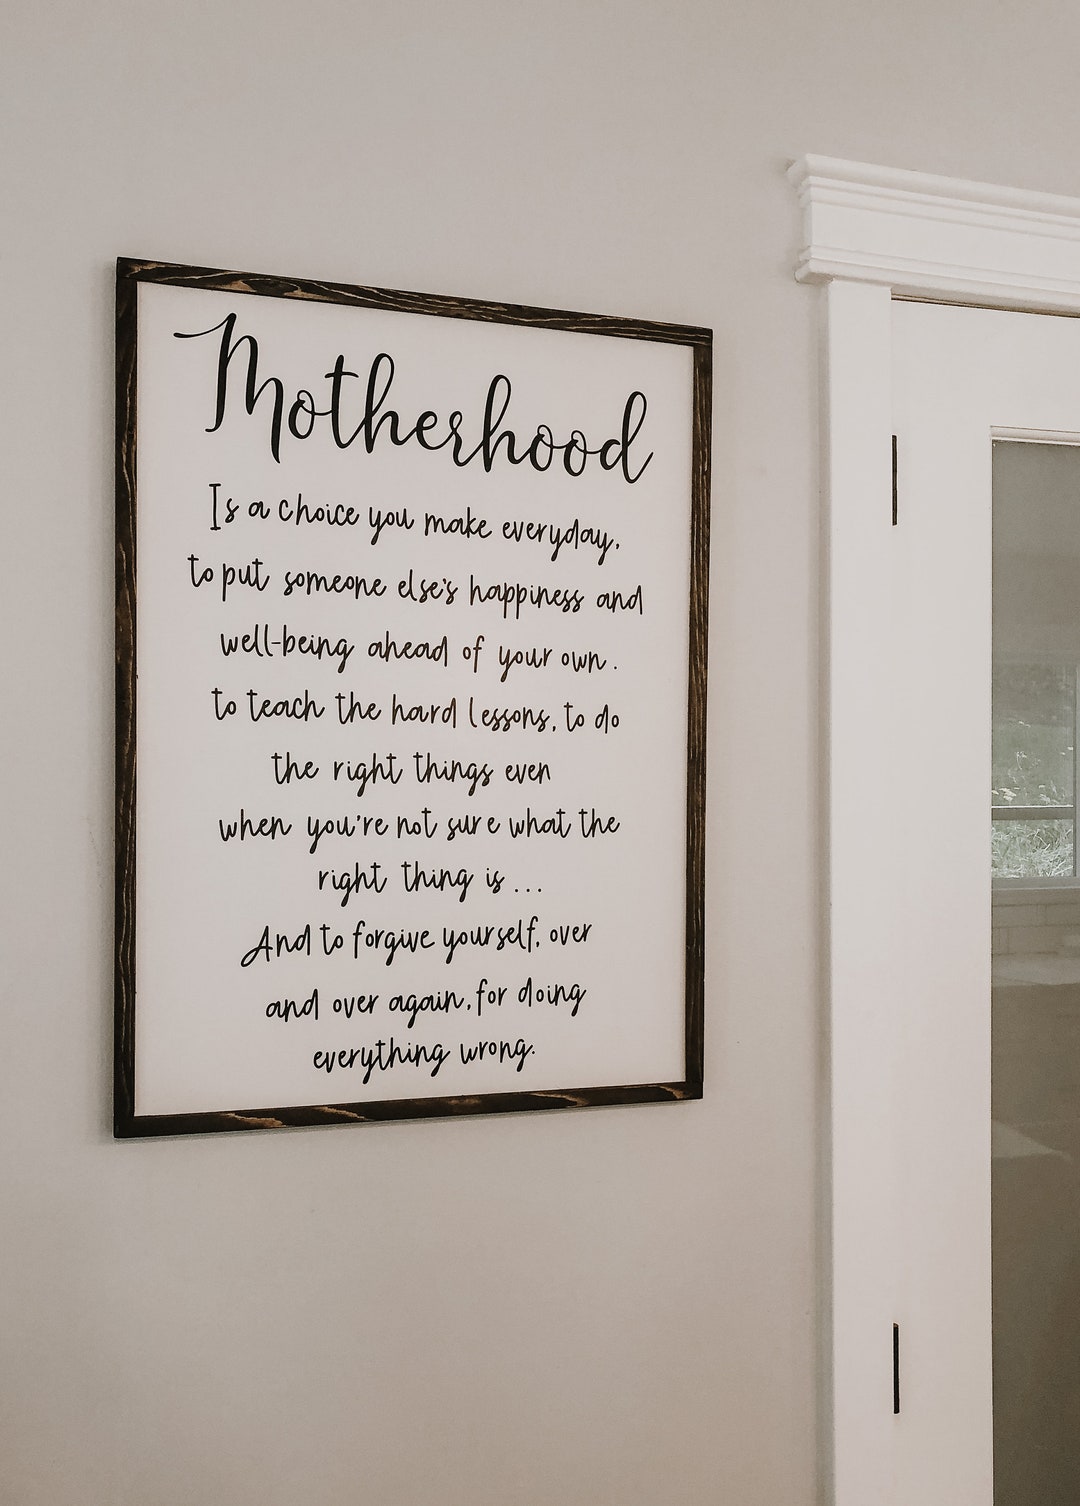 Motherhood
Is a choice you make everyday,
to put someone else's happiness and
well-being ahead of your own.
to teach the hard lessons, to do
the right things even
when you're not sure what the
right thing is ...
And to forgive yourself, over
and over again, for doing
everything wrong.